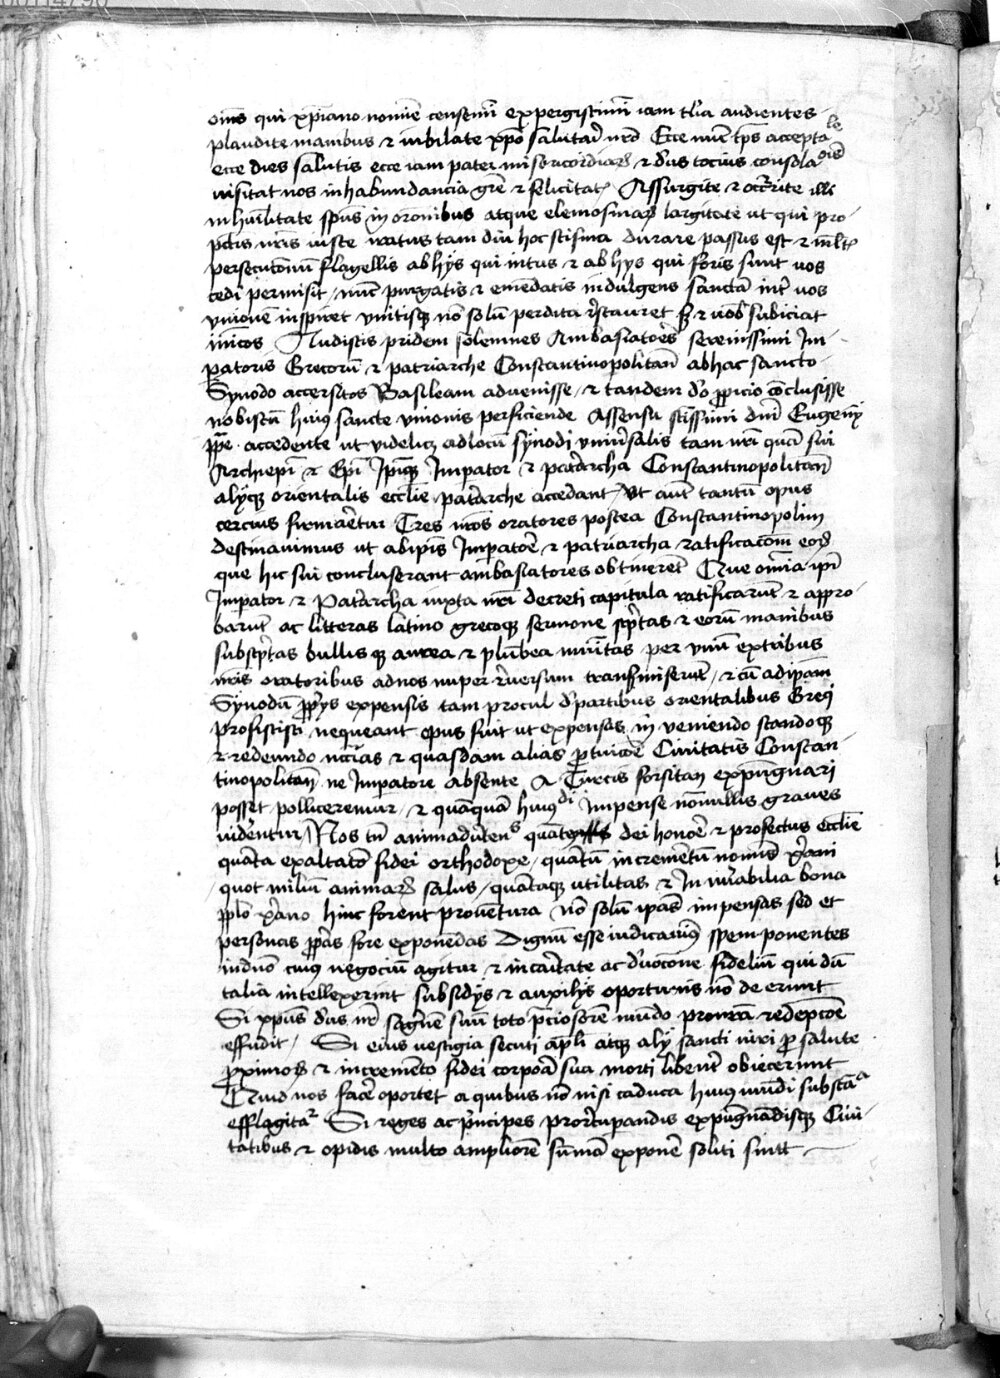 om̄s qui xp̄iano nomine censemī expergiscimī iam tl̄ia audientes
plaudite manibus et iubilate xp̄o salutari nr̄o Ecce nūc tp̄s accepta
bile
ecce dies salutis ecce iam pater misericordiaꝝ et dn̄s tocius consola
cōis
visitat nos in habundancia gr̄e et felicitatꝭ Assurgite et occr̄rite illi
in hūilitate sp̄us in orōnibus atque elemosinaꝝ largitate ut qui pro
pctīs nr̄is iuste iratus tam diu hoc scisma durare passus est et mltꝭ
persecutionū flagellis ab hijs qui intus et ab hys qui foris sunt uos
cedi permisit / nūc purgatis et emēdatis indulgens sanctā int̄ uos
unionē inspiret unitisqꝫ nō solū perdita r̄stauret sꝫ et uob̄ subiciat
inīcos Audistis pridem solemnes Ambasiatores serenissimi Im
patoris Grecorū et patriarche Constantinopolitani ab hac sancto
Synodo accersitos Basileam aduenisse / et tandem dō ꝓpicio cōclusisse
nobiscū huiꝰ sancte unionis perficiende Assensu scīssimi dn̄i Eugenij
pp̄e accedente ut videlicꝫ ad locū synodi unīusalis tam nr̄i quā sui
Archiep̄i et Ep̄i Ip̄iqꝫ Imperator et patriarcha Constantinopolitanī
alijqꝫ orientalis ecclīe patriarche accedant / Ut aūt tantū opus
cercius firmaretur Tres nr̄os oratores postea Constantinopolim
destinauimus ut ab ip̄is Imperatorē et patriarcha ratificacōem eoꝝ
que hic sui concluserant ambasiatores obtinerēt Que om̄ia ip̄i
Imperator et Patriarcha iuxta nr̄i decreti capitula ratificarūt et appro
barūt ac litteras latino grecoqꝫ sermone scrip̄tas et eorū manibus
subscrip̄tas bullisqꝫ aurea et plūbea munitas per unū ex tribus
nr̄is oratoribus ad nos nuper r̄uersum transmiserūt / et cū ad ip̄am
Synodū ꝓprijs expensis tam procul d̄ partibus orientalibus Greci
proficisci nequeant opus fuit ut expensas in veniendo standoqꝫ
et redeundo nccīas et quasdam alias ꝓ tuicōe Ciuitatis Constan
tinopolitan̄ ne Imperatore absente A Turcis forsitan expūgnari
posset polliceremur / et quāquā huiꝰdi impense nōnullis graues
videntur / Nos tn̄ animaduertentes quāta dei honorē et profectus ecclīe
quāta exaltatō fidei orthodoxe / quātū incremētū nomīs xp̄iani
quot miliū animaꝝ salus / quātaqꝫ utilitas et Inmirabilia bona
pp̄lo xp̄iano hinc forent prouētura nō solū ip̄as impensas sed et
personas ꝓprias fore exponēdas Dignū esse iudicauimꝰ spem ponentes
in dn̄o cuiꝰ negociū agitur et in caritate ac d̄uocōne fidelium qui dū
talia intellexerint subsidijs et auxilijs oportunis nō deerunt
Si xp̄us dn̄s nr̄ sanguinē suū toto p̄ciosiorē mūdo pro nr̄a redēpcōe
effudit / Si eius uestigia secuti ap̄li atqꝫ alij sancti viri ꝓ salute
proximoꝝ et incremēto fidei corpora sua morti libent̄ obiecerunt
Quid nos facē oportet a quibus nō nisi caduca huiꝰ mūdi substāia
efflagitatꝛ Si reges ac p̄ncipes pro r̄cuperandis expūgnādisqꝫ Ciui
tatibus et opidis multo ampliorē sūmā exponē soliti sunt